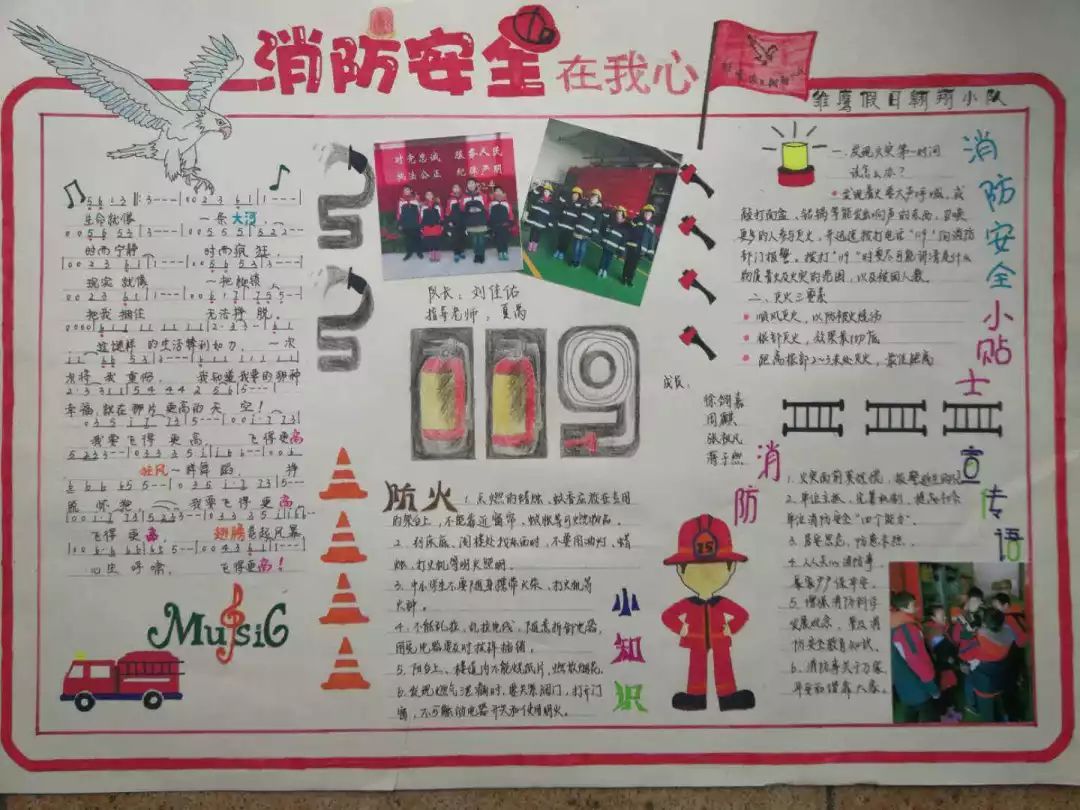 消防安全在我心
雏鹰假日翱翔小队
生命就像 一条大河
时而宁静 时而疯狂
现实就像 一把枷锁
把我捆住 无法挣脱
这谜样的生活锋利如刀，一次
次将我重伤， 我知道我要的那种
幸福，就在那片更高的天空！
我要飞得更高， 飞得更高
狂风一样舞蹈， 挣
脱怀抱 我要飞得更高
飞得更高， 翅膀卷起风暴
心生呼啸， 飞得更高！
Music
对党忠诚 服务人民
执法公正 纪律严明
队长：刘佳佑
指导老师：夏禹
119
成员：
周麒
防火
1. 点燃的蜡烛、蚊香应放在专用
的架台上，不能靠近窗帘、蚊帐等可燃物品。
2. 到床底、阁楼处找东西时，不要用油灯、蜡
烛、打火机等明火照明。
3. 中小学生不要随身携带火柴、打火机等
火种。
4. 不能乱拉、乱接电线，随意拆卸电器，
用完电器要及时拔掉插销。
5. 阳台上、楼道内不能烧纸片，燃放烟花。
6. 发现燃气泄漏时，要关紧阀门，打开门
窗，不可触动电器开关和使用明火。
消防
小知识
15
消防安全小贴士
一、发现火灾第一时间
该怎么办？
发现着火要大声呼喊，或
敲打面盆、铝锅等能发出响声的东西，召唤
更多的人参与灭火，并迅速拨打电话"119"向消防
部门报警。拨打"119"时要尽可能讲清是什么
物质着火及火灾的范围，以及被困人数。
二、灭火三要素
顺风灭火，以防被火烧伤
根部灭火，效果最彻底
距离根部2~3米处灭火，最佳距离
宣传语
1. 火灾面前莫慌慌，报警逃生
2. 单位主抓，完善机制，提高社会
单位消防安全"四个能力"。
3. 居安思危，防患未然。
4. 人人关心消防事，
家家户户保平安。
5. 增强消防科学
发展观念，普及消
防安全教育知识。
6. 消防事关千万家
平安和谐靠大家。